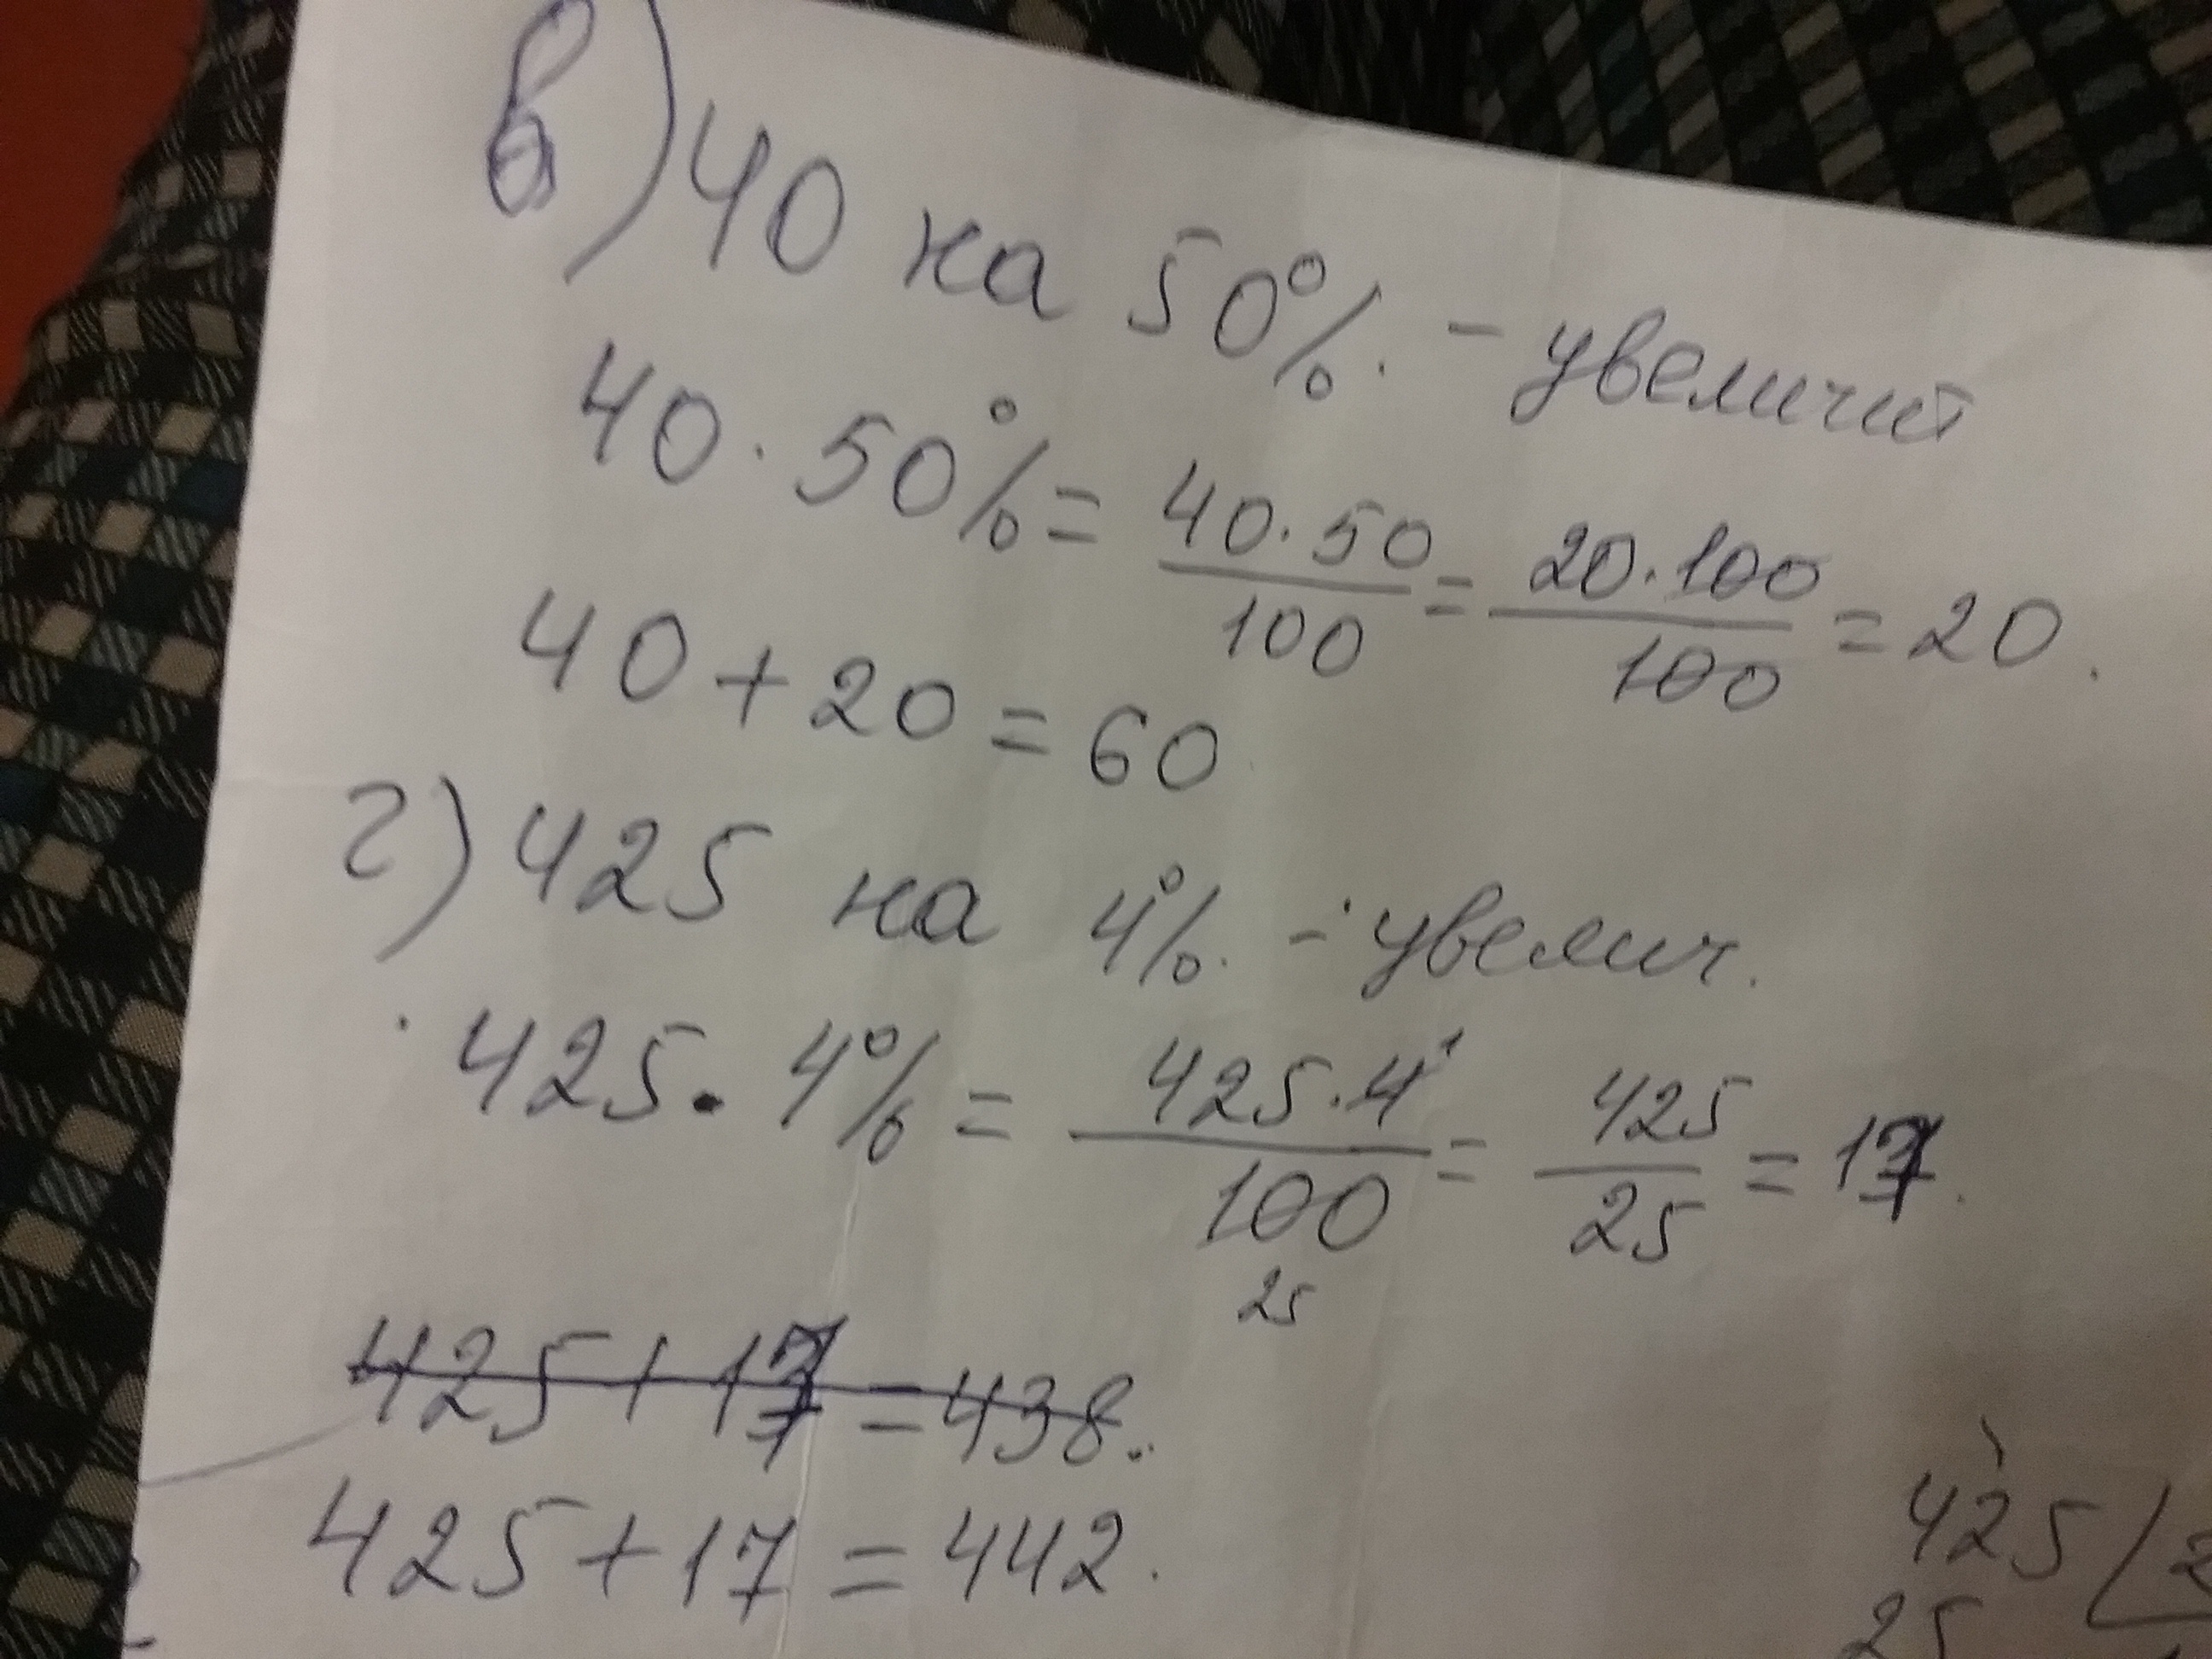 в) 40 на 50%. - увеличит
40 · 50% = 40·50/100 = 20·100/100 = 20.
40 + 20 = 60
г) 425 на 4%. - увелич.
425 · 4% = 425·4¹/100 25 = 425/25 = 17.
425 + 17 = 438.
425 + 17 = 442.
425
25